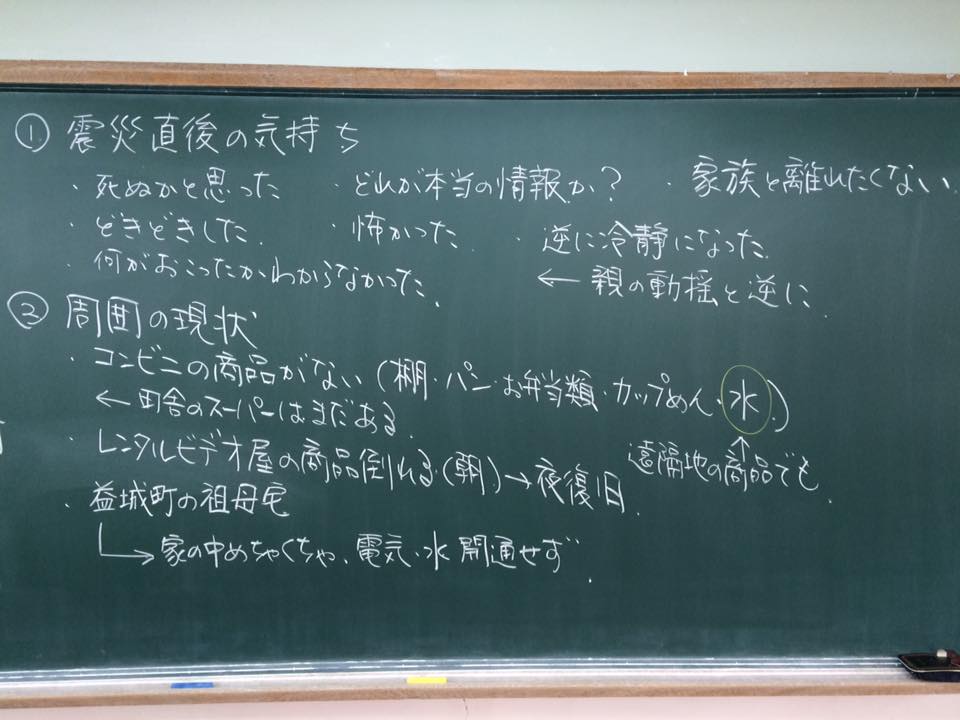 ① 震災直後の気持ち
・死ぬかと思った ・どれが本当の情報か? ・家族と離れたくない
・どきどきした. ・怖かった. ・逆に冷静になった.
・何がおこったかわからなかった. ← 親の動揺と逆に.
② 周囲の現状
・コンビニの商品がない(棚・パン・お弁当類・カップめん・水.)
← 田舎のスーパーはまだある.
・レンタルビデオ屋の商品倒れる(朝)→夜復旧.
↑遠隔地の商品でも.
・益城町の祖母宅
→家の中めちゃくちゃ、電気・水 開通せず.